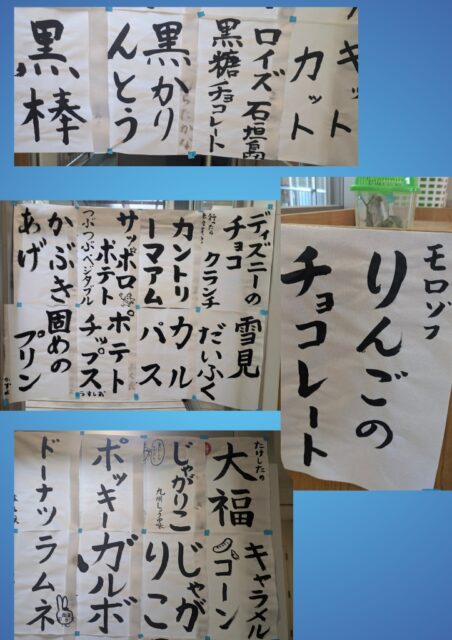 キット
カット
ロイズ石垣島
黒糖チョコレート
黒かり
んとう
黒棒
ディズニーの
チョコ
クランチ
カントリ
ーマアム
サッポロ
ポテト
つぶつぶベジタブル
かぶき
あげ
雪見
だいふく
カル
パス
ポテト
チップス
うすしお
固めの
プリン
モロゾフ
りんごの
チョコレート
たけしたの
大福
じゃがりこ
九州しょうゆ味
ポッキー
ドーナツ
キャラメル
コーン
じゃが
りこ
ガルボ
ラムネ